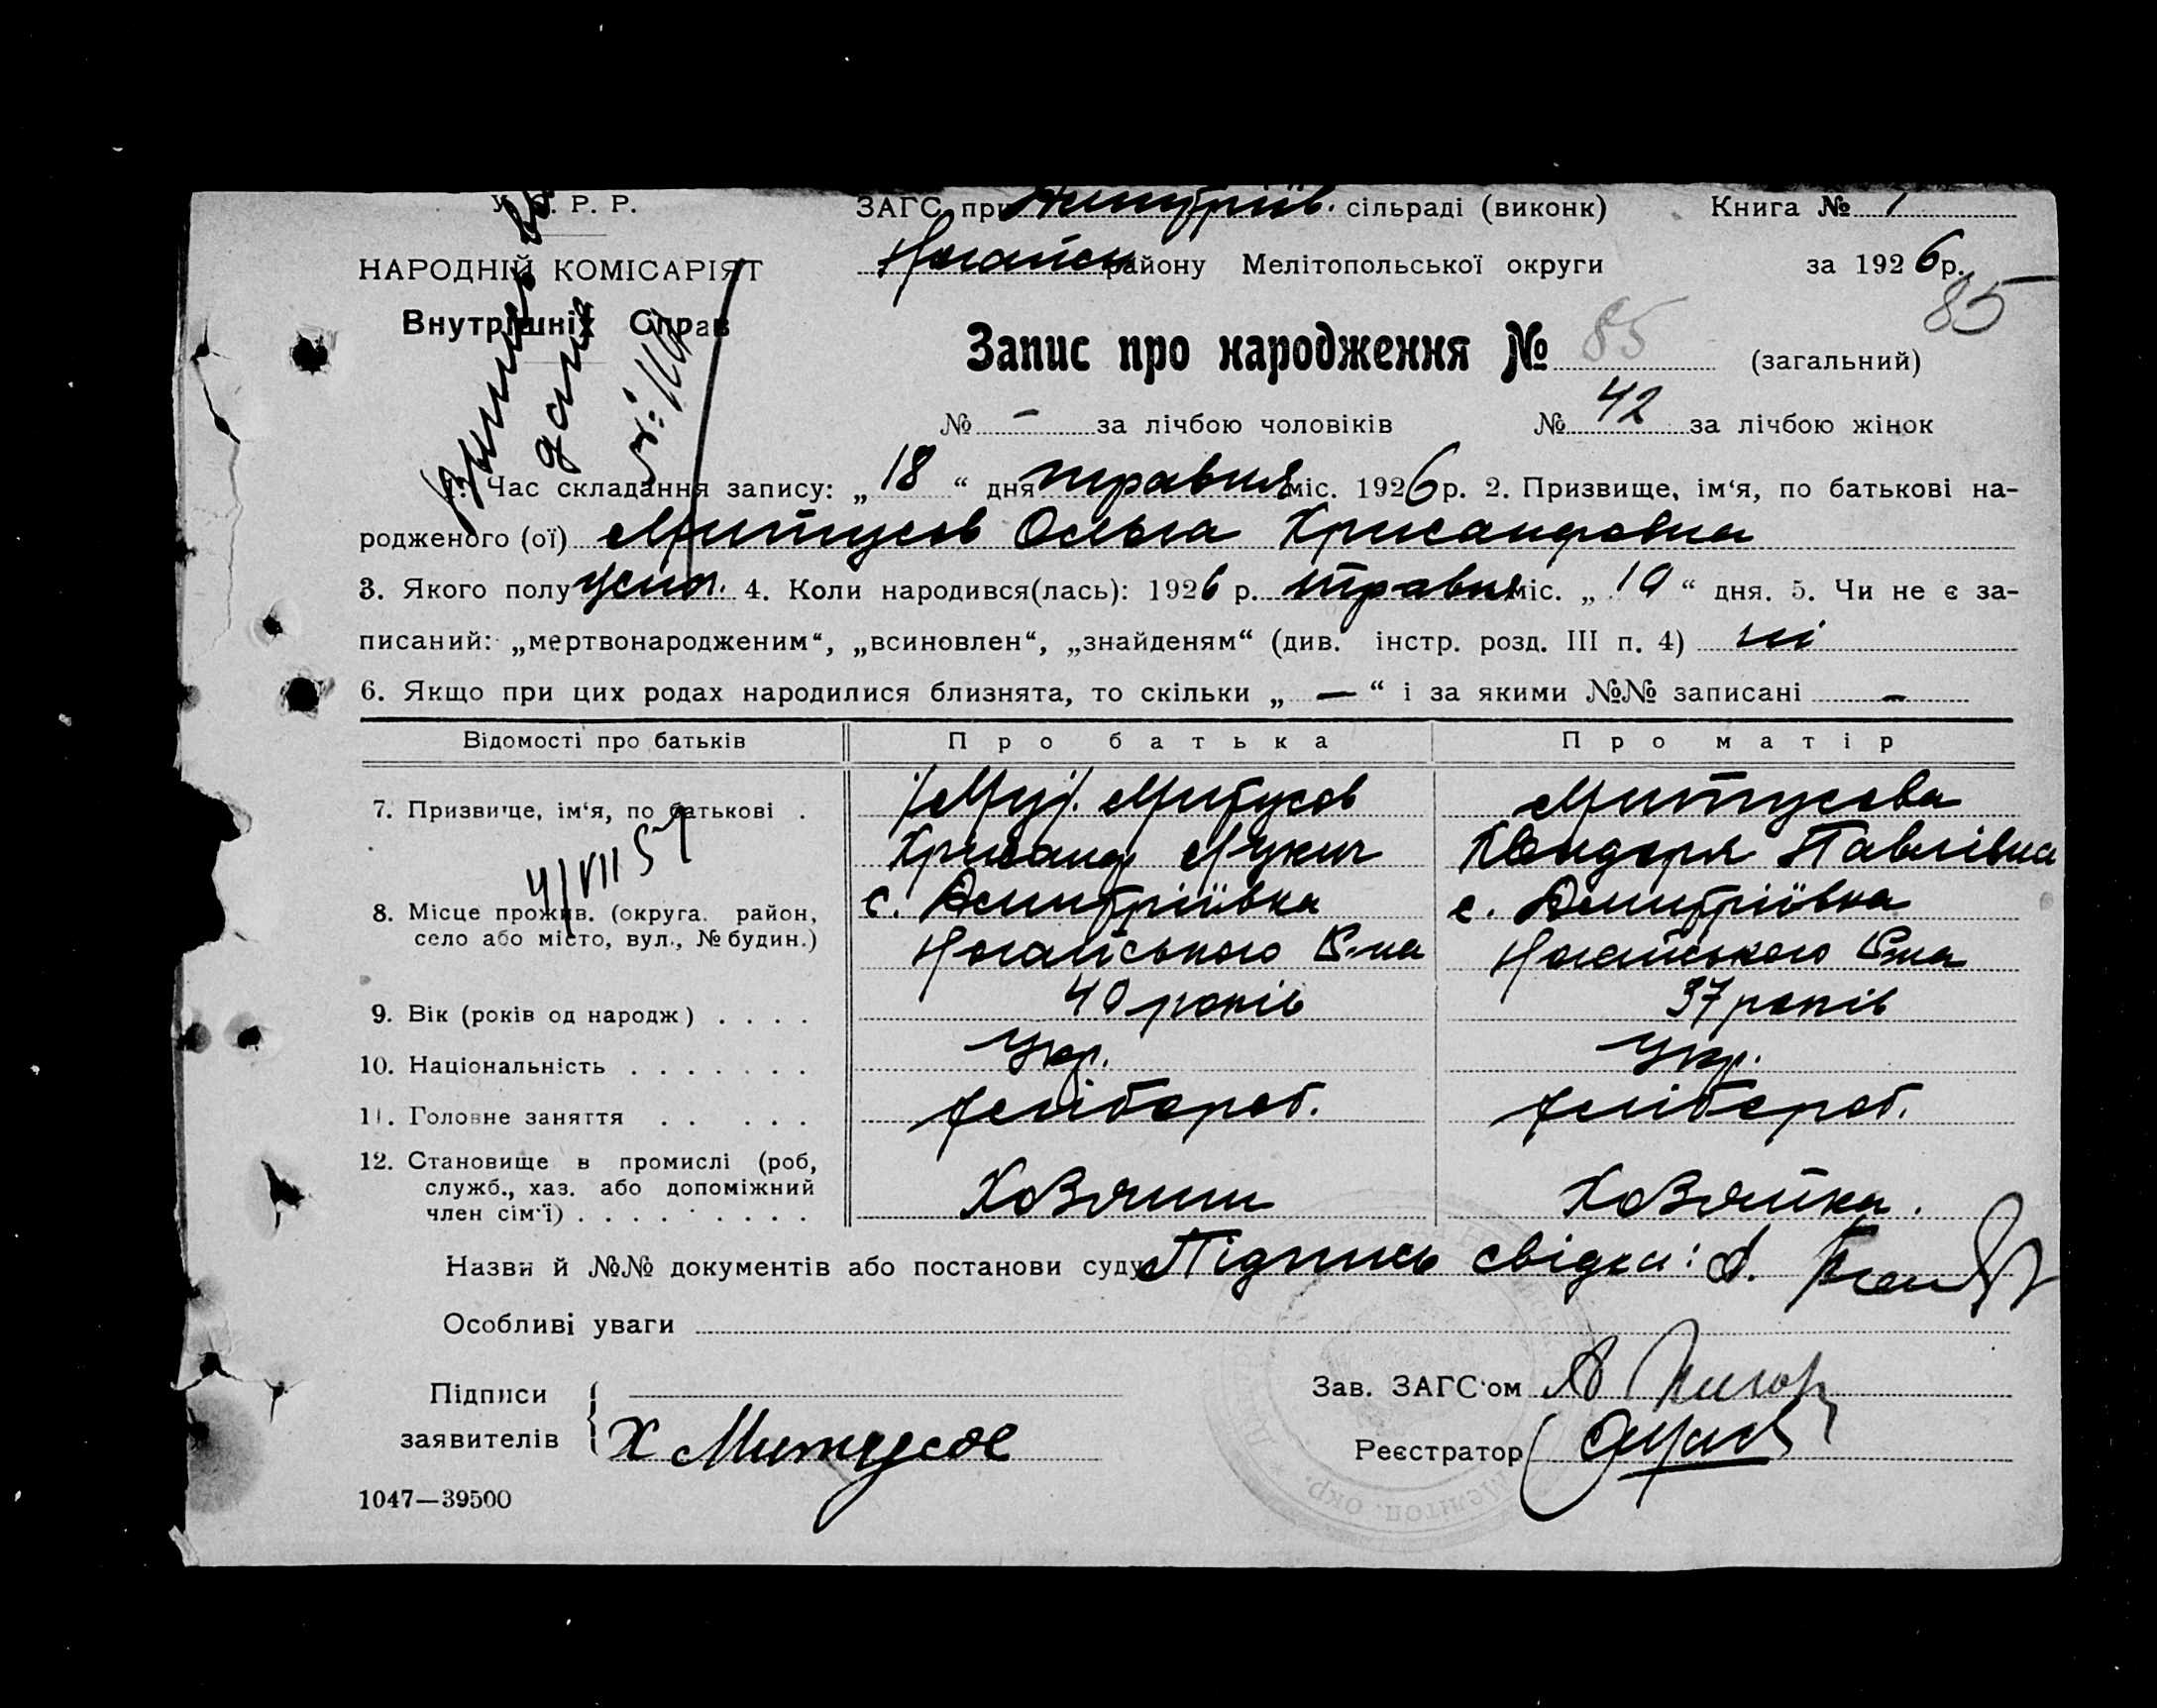 У. С. Р. Р.
НАРОДНІЙ КОМІСАРІЯТ
Внутрішніх Справ
ЗАГС при Дмитріїв. сільраді (виконк) Книга № 1
Ногайськ району Мелітопольської округи за 1926 р.
85
Запис про народження № 85 (загальний)
№ — за лічбою чоловіків № 42 за лічбою жінок
1. Час складання запису: „18“ дня травня міс. 1926 р. 2. Призвище, ім‘я, по батькові на-
родженого (ої) Митусов Ольга Хрисанфовна
3. Якого полу жіноч. 4. Коли народився(лась): 1926 р. травня міс. „10“ дня. 5. Чи не є за-
писаний: „мертвонародженим“, „всиновлен“, „знайденям“ (див. інстр. розд. III п. 4) ні
6. Якщо при цих родах народилися близнята, то скільки „—“ і за якими №№ записані —
Відомості про батьків Про батька Про матір
7. Призвище, ім‘я, по батькові . Митусов Митусова
Хрисанф Лукич Павлівна
4/VII 57
8. Місце прожив. (округа. район, с. Дмитріївка с. Дмитріївка
село або місто, вул., № будин.) Ногайського Р-на Ногайського Р-на
9. Вік (років од народж) . . . . 40 років 37 років
10. Національність . . . . . . . Укр. Укр.
11. Головне заняття . . . . . хлібороб. хлібороб.
12. Становище в промислі (роб,
служб., хаз. або допоміжний
член сім‘ї) . . . . . . . . . Хозяин Хозяйка.
Назви й №№ документів або постанови суду Підпись свідка:
Особливі уваги
Підписи
заявителів Х Митусов
Зав. ЗАГС‘ом
Реєстратор
Мелітоп. окр.
1047—39500